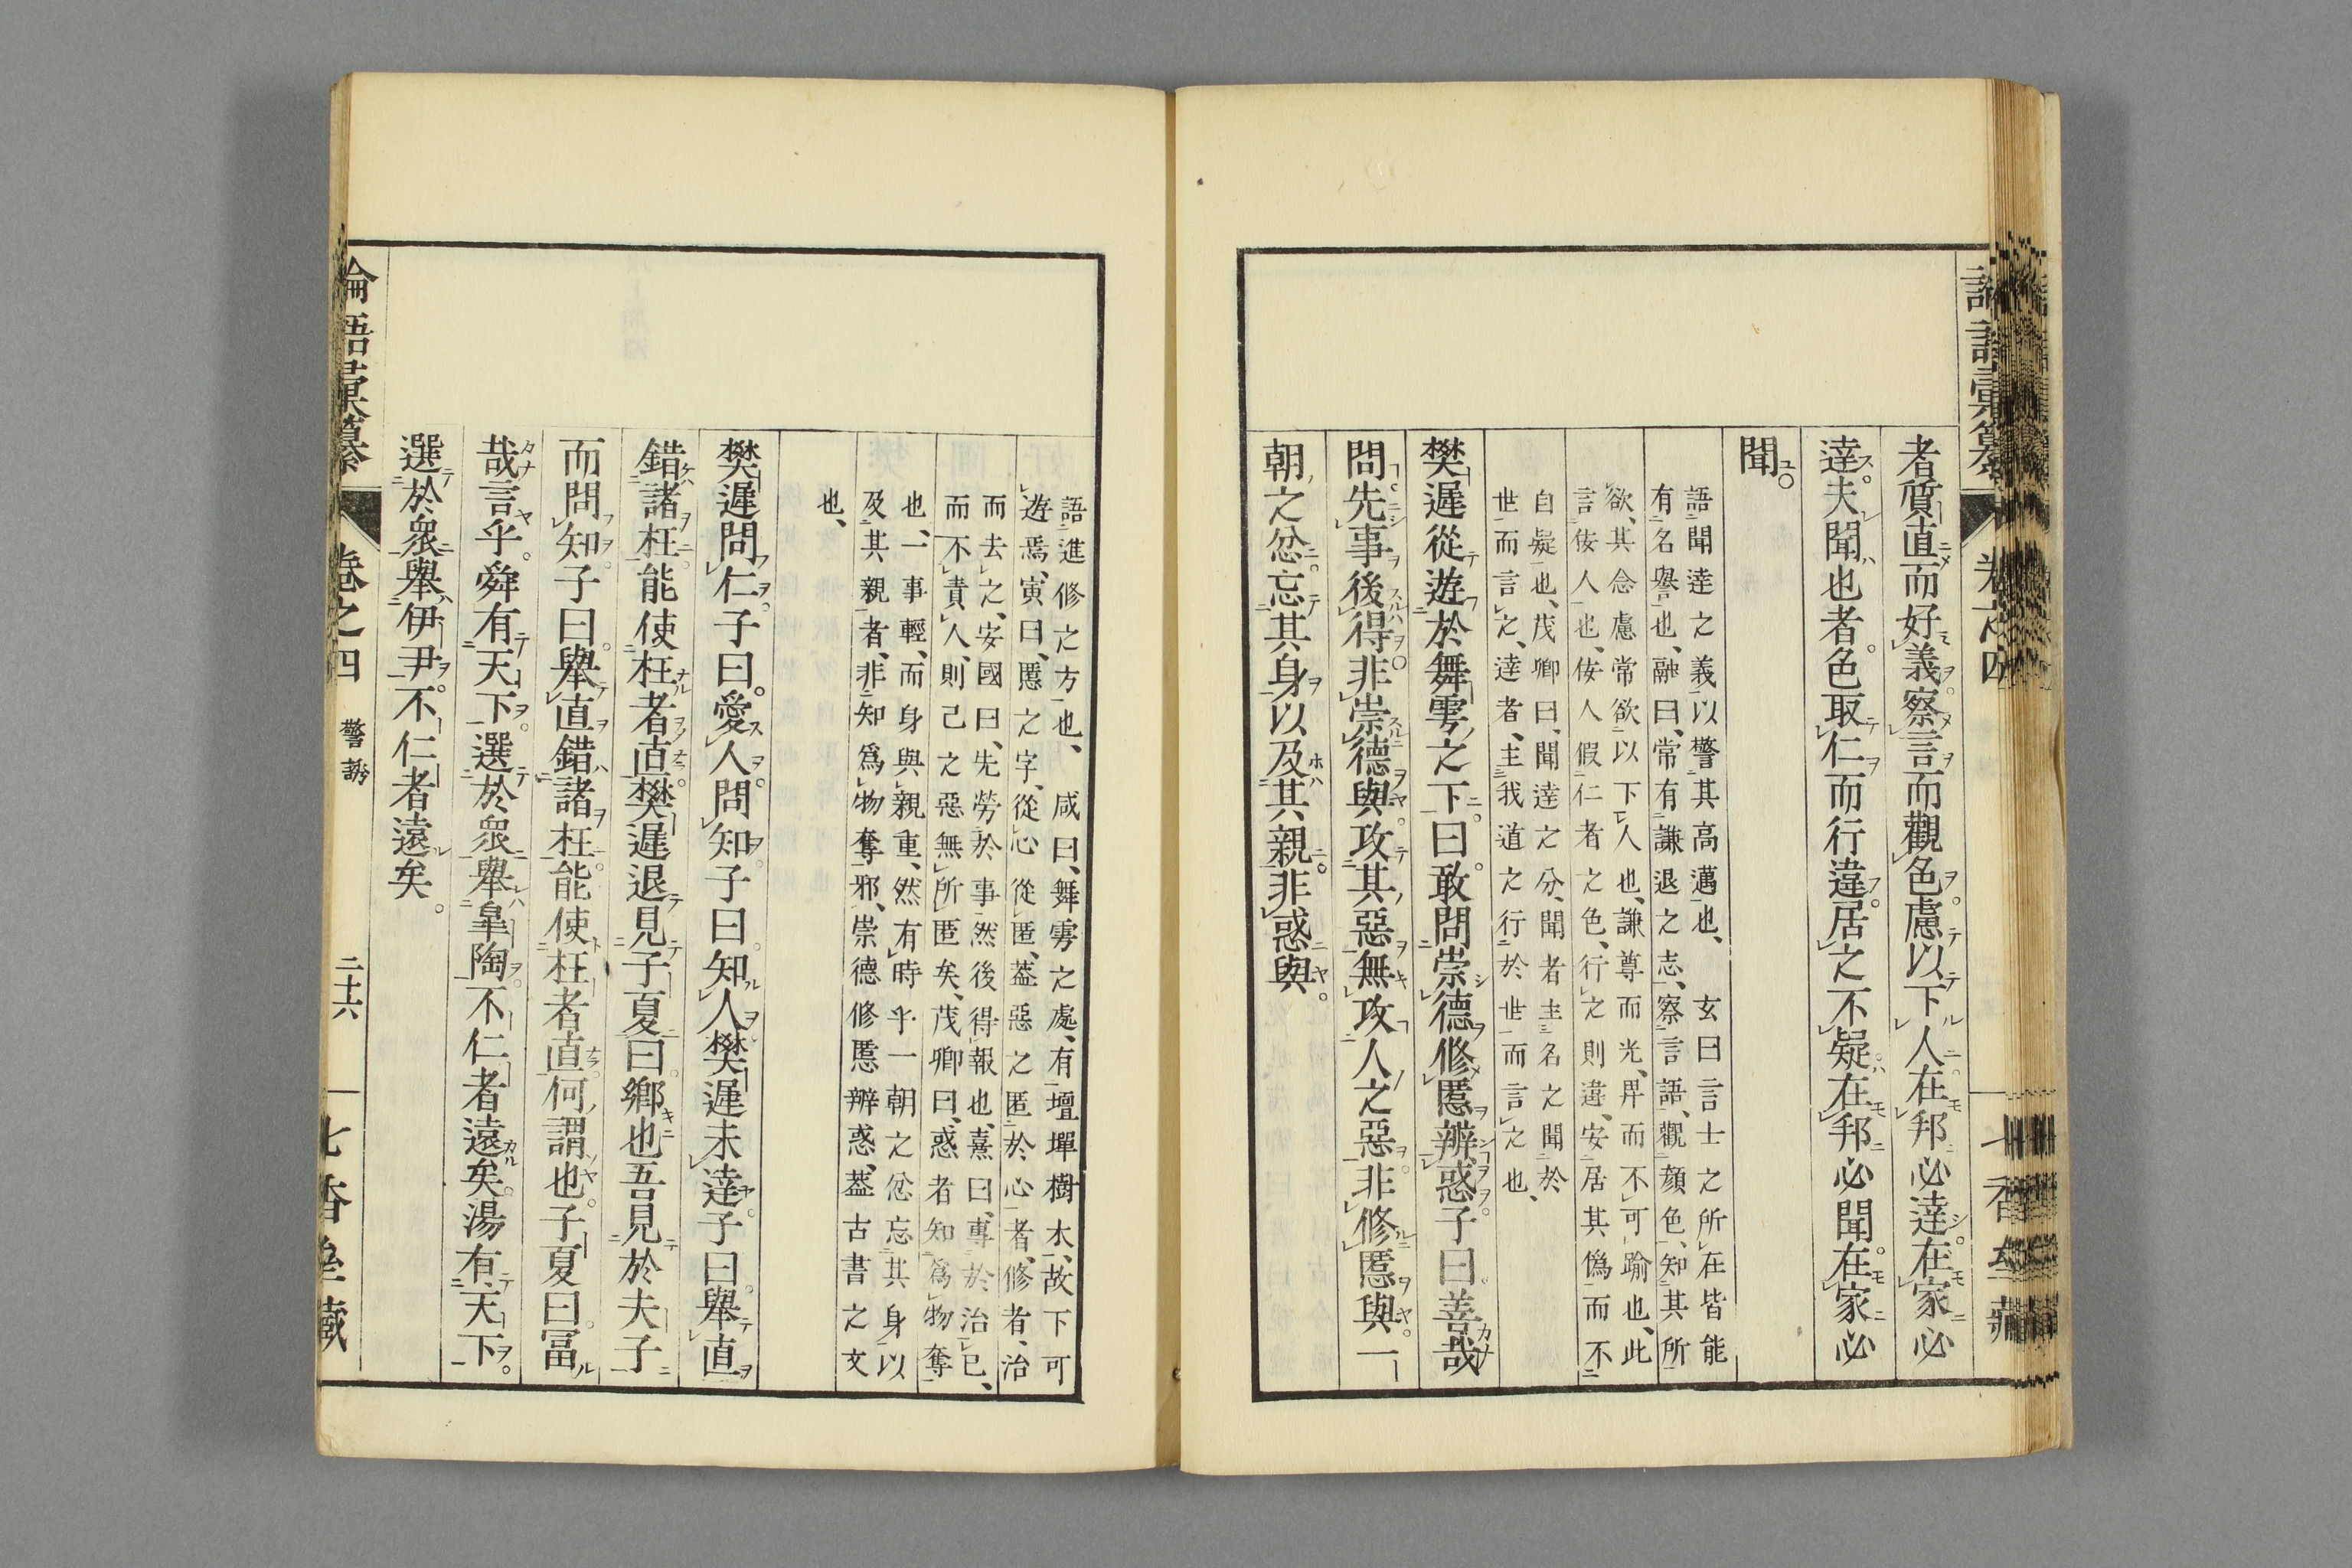 論語彙纂
卷之四
七香齋藏
者質直而好義察言而觀色慮以下人在邦必達在家必
達夫聞也者色取仁而行違居之不疑在邦必聞在家必
聞
語聞達之義以警其高邁也、玄曰言士之所在皆能
有名譽也、融曰、常有謙退之志、察言語、觀顏色、知其所
欲、其念慮常欲以下人也、謙尊而光、卑而不可踰也、此
言侫人也、侫人假仁者之色、行之則違、安居其僞而不
自疑也、茂卿曰、聞達之分、聞者主名之聞於
世而言之、達者、主我道之行於世而言之也、
樊遲從遊於舞雩之下曰敢問崇德修慝辨惑子曰善哉
問先事後得非崇德與攻其惡無攻人之惡非修慝與一
朝之忿忘其身以及其親非惑與
語進修之方也、咸曰、舞雩之處、有壇墠樹木、故下可
遊焉、寅曰、慝之字、從心從匿、葢惡之匿於心者、修者、治
而去之、安國曰、先勞於事然後得報也、熹曰、專於治己、
而不責人、則己之惡無所匿矣、茂卿曰、惑者知爲物奪
也、一事輕、而身與親重、然有時乎一朝之忿忘其身以
及其親者、非知爲物奪邪、崇德修慝辨惑、葢古書之文
也、
樊遲問仁子曰愛人問知子曰知人樊遲未達子曰舉直
錯諸枉能使枉者直樊遲退見子夏曰鄉也吾見於夫子
而問知子曰舉直錯諸枉能使枉者直何謂也子夏曰冨
哉言乎舜有天下選於衆舉皐陶不仁者遠矣湯有天下
選於衆舉伊尹不仁者遠矣
論語彙纂
卷之四
警誘
二十六
七香齋藏